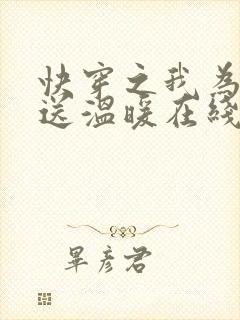 快穿之我为
送温暖在线
畢彦君